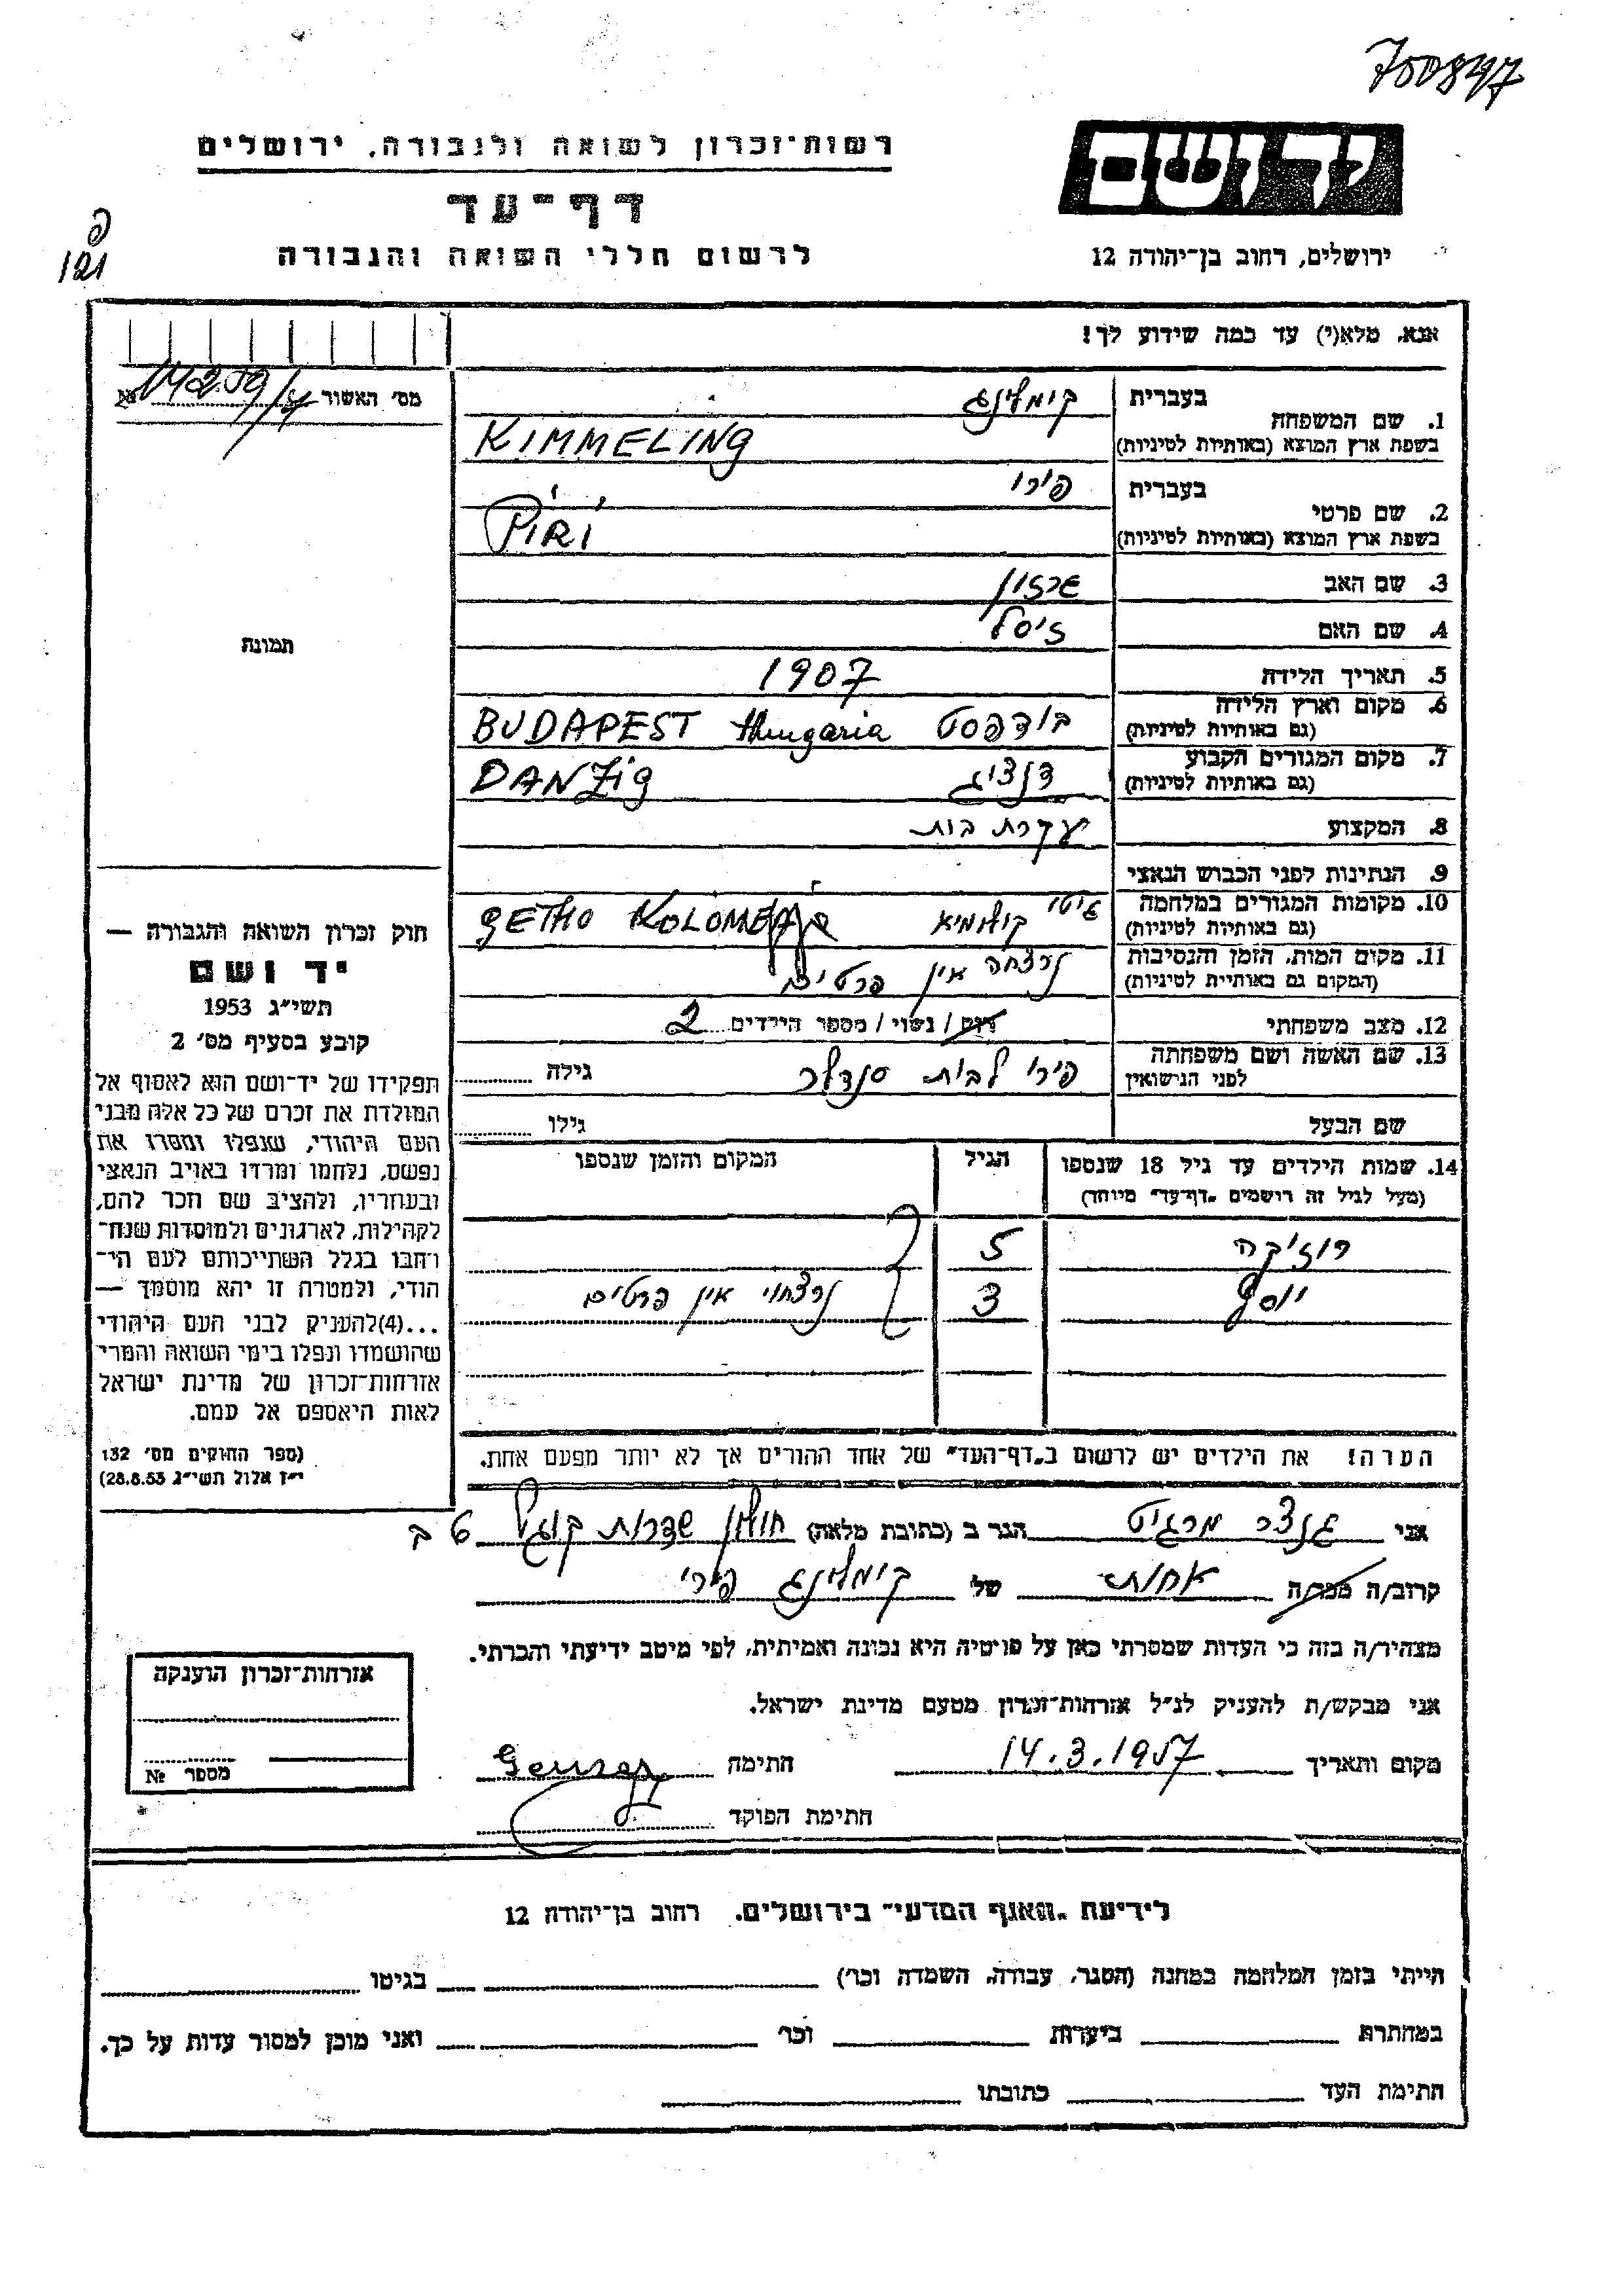 700847
רשות־זכרון לשואה ולגבורה, ירושלים
יד ושם
דף־עד
לרשום חללי השואה והגבורה
ירושלים, רחוב בן־יהודה 12
פ
121
אנא, מלא(י) עד כמה שידוע לך!
מס' האשור №
1. שם המשפחה בעברית קימלינג
בשפת ארץ המוצא (באותיות לטיניות) KIMMELING
2. שם פרטי בעברית פירי
בשפת ארץ המוצא (באותיות לטיניות) PIRI
3. שם האב
4. שם האם זיסל
5. תאריך הלידה 1907
6. מקום וארץ הלידה (גם באותיות לטיניות) בודפסט BUDAPEST Hungaria
7. מקום המגורים הקבוע (גם באותיות לטיניות) דנציג DANZIG
8. המקצוע עקרת בית
9. הנתינות לפני הכבוש הנאצי
10. מקומות המגורים במלחמה (גם באותיות לטיניות) גיטו קולומיא GETHO KOLOMEA
11. מקום המות, הזמן והנסיבות (המקום גם באותיית לטיניות) נרצחה אין פרטים
12. מצב משפחתי רווק / נשוי / מספר הילדים 2
13. שם האשה ושם משפחתה לפני הנישואין פירי לבית סנדלר גילה
שם הבעל גילו
14. שמות הילדים עד גיל 18 שנספו (מעל לגיל זה רושמים „דף־עד" מיוחד) הגיל המקום והזמן שנספו
רוזיקה 5
יוסף 3 נרצחו אין פרטים
הערה! את הילדים יש לרשום ב„דף־העד" של אחד ההורים אך לא יותר מפעם אחת.
תמונה
חוק זכרון השואה והגבורה —
יד ושם
תשי״ג 1953
קובע בסעיף מס' 2
תפקידו של יד־ושם הוא לאסוף אל
המולדת את זכרם של כל אלה מבני
העם היהודי, שנפלו ומסרו את
נפשם, נלחמו ומרדו באויב הנאצי
ובעוזריו, ולהציב שם וזכר להם,
לקהילות, לארגונים ולמוסדות שנח־
רחבו בגלל השתייכותם לעם הי־
הודי, ולמטרה זו יהא מוסמך —
...(4)להעניק לבני העם היהודי
שהושמדו ונפלו בימי השואה והמרי
אזרחות־זכרון של מדינת ישראל
לאות היאספם אל עמם.
(ספר החוקים מס' 132
י״ז אלול תשי״ג 28.8.53)
אני גנצר מרגיט הגר ב (כתובת מלאה) חולון שדרות קוגל 6 ב
קרוב/ה מכר/ה אחות של קימלינג פירי
מצהיר/ה בזה כי העדות שמסרתי כאן על פרטיה היא נכונה ואמיתית, לפי מיטב ידיעתי והכרתי.
אני מבקש/ת להעניק לנ״ל אזרחות־זכרון מטעם מדינת ישראל.
מקום ותאריך 14.3.1957 חתימה
חתימת הפוקד
אזרחות־זכרון הוענקה
מספר №
לידיעת „האגף המדעי" בירושלים, רחוב בן־יהודה 12
הייתי בזמן המלחמה במחנה (הסגר, עבודה, השמדה וכו') בגיטו
במחתרת ביערות וכו' ואני מוכן למסור עדות על כך.
חתימת העד כתובתו